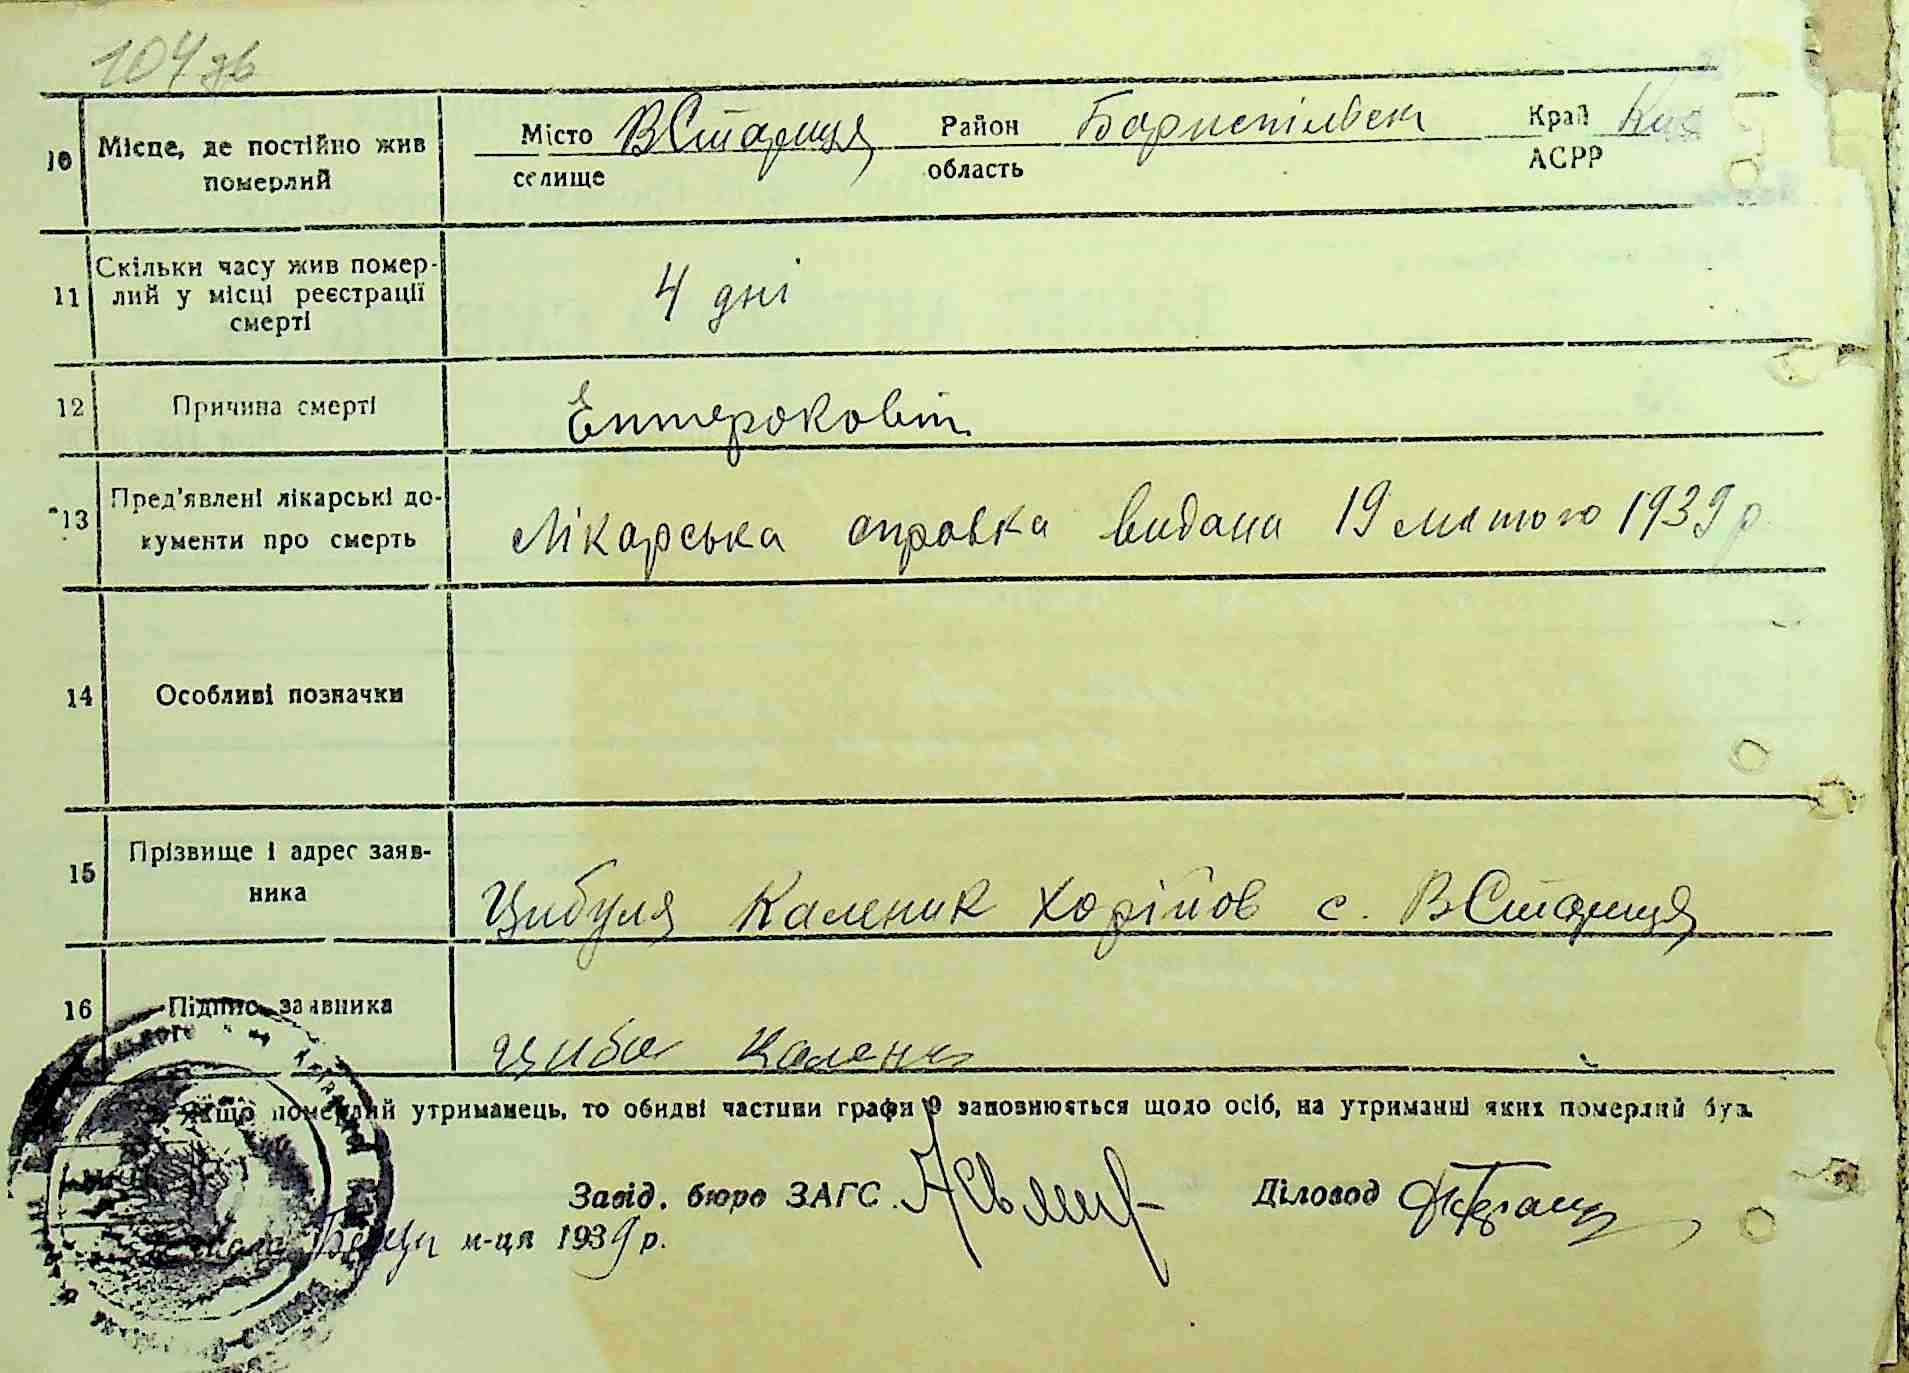 104 зв
10 Місце, де постійно жив померлий
Місто селище ВСтариця Район область Бориспільськ Край АСРР Киє
11 Скільки часу жив помер-
лий у місці реєстрації
смерті
4 дні
12 Причина смерті
Ентероколіт
13 Пред'явлені лікарські до-
кументи про смерть
Лікарська справка видана 19 лютого 1939 р
14 Особливі позначки
15 Прізвище і адрес заяв-
ника
Цибуля Каленик с. ВСтариця
16 Підпис заявника
Циба Калени
Якщо померлий утриманець, то обидві частини графи 9 заповнюється щодо осіб, на утриманні яких померлий був.
Завід. бюро ЗАГС Діловод
м-ця 1939 р.